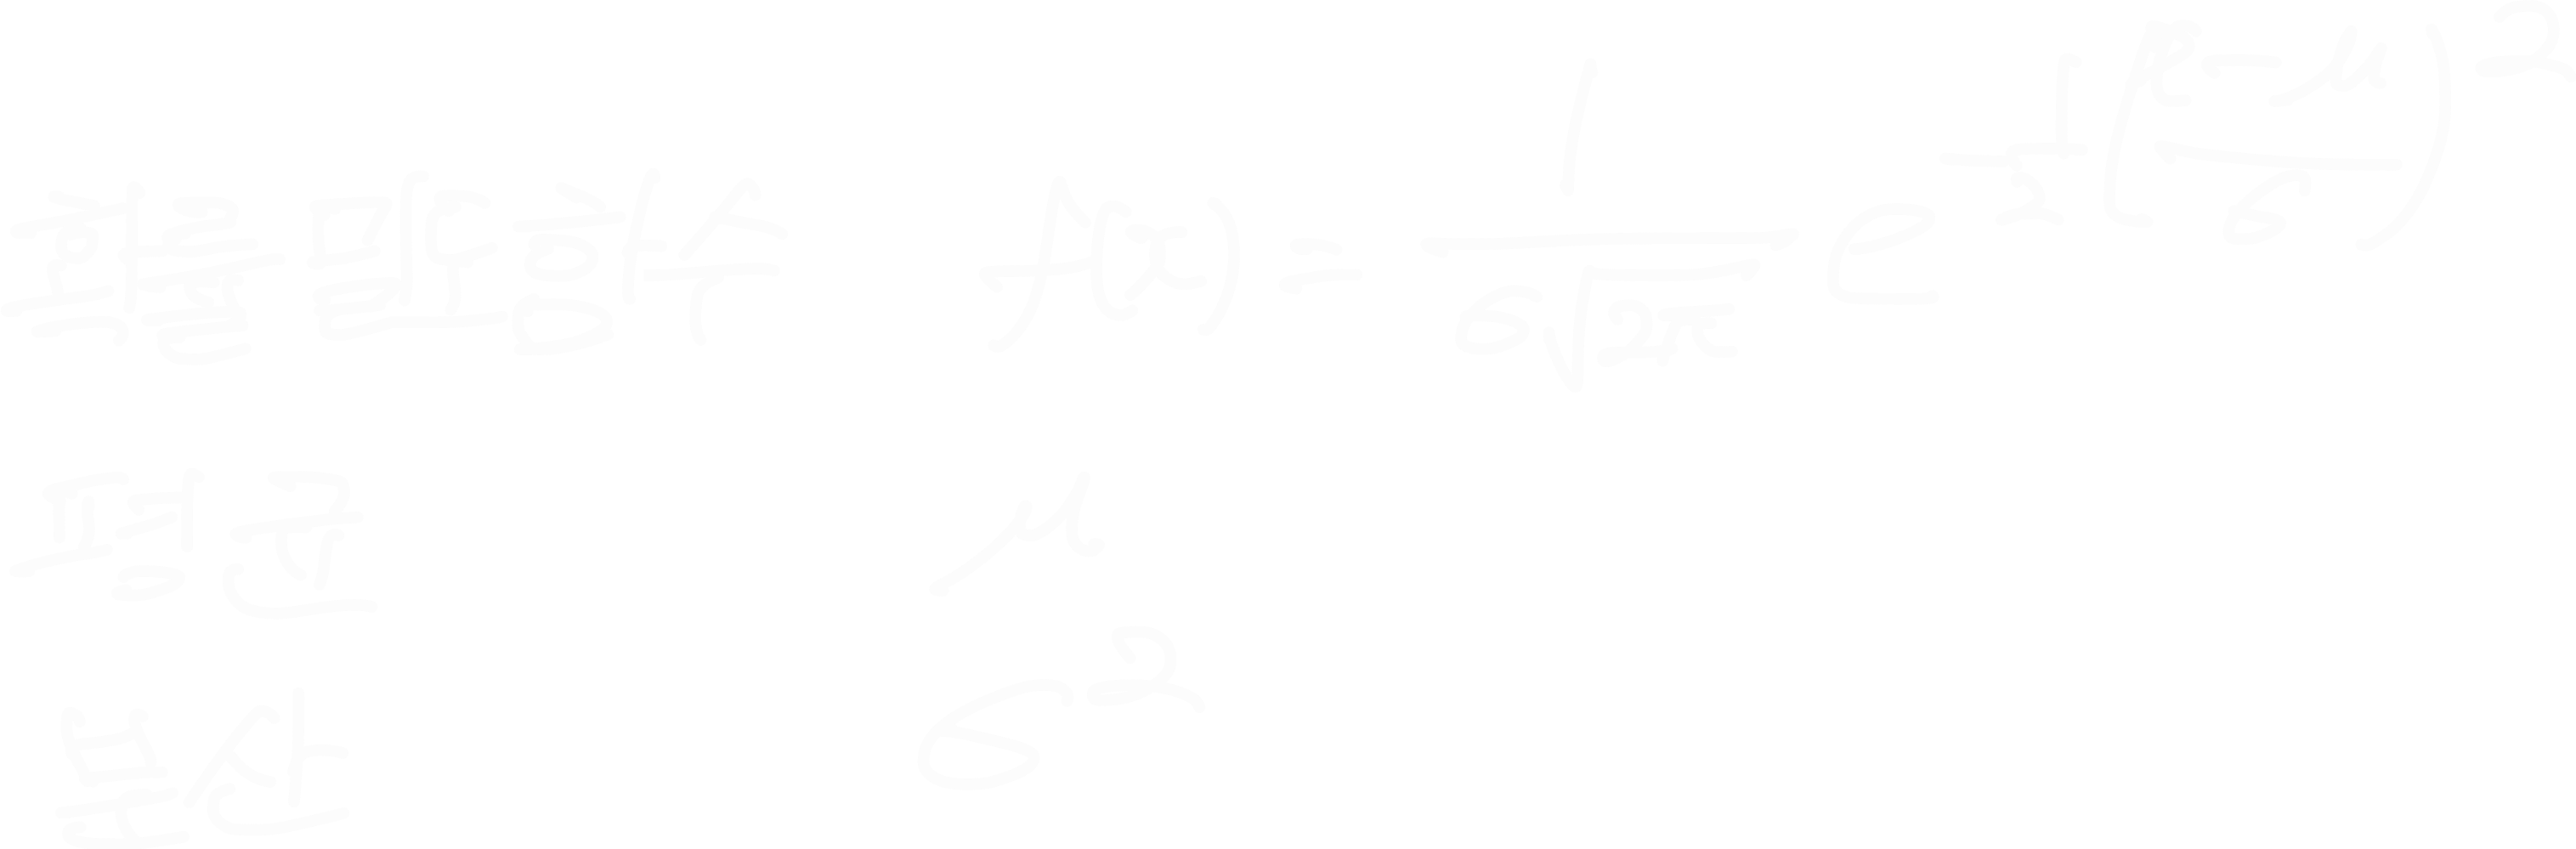 확률밀도함수 f(x) = \frac{1}{σ\sqrt{2π}} e^{-\frac{1}{2}(\frac{x-μ}{σ})^2}
평균 μ
분산 σ^2